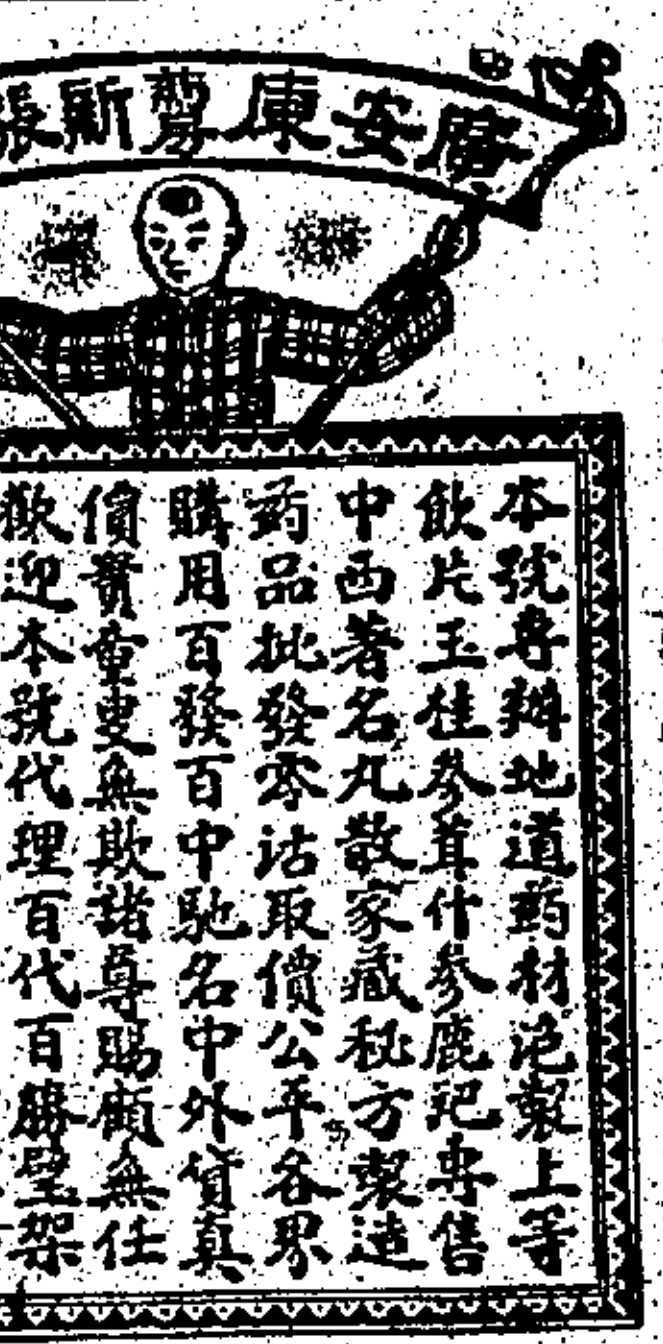 廣安康蒭新張
本號專辦地道葯材泡製上等
飲片玉桂參茸什參鹿祀專售
中西著名丸散家藏秘方製造
葯品批發零沽取價公平各界
購用百發百中馳名中外貨真
價實童叟無欺諸尊賜顧無任
歡迎本號代理百代百勝璧架